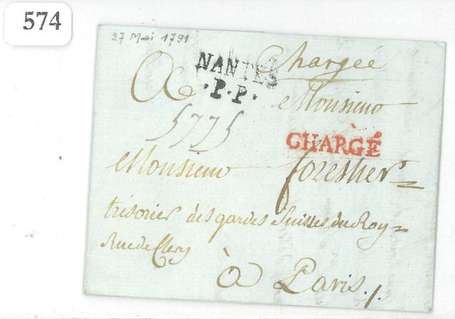 574
27 Mai 1791
Chargée
NANTES
.P.P.
A Monsieur
5775
CHARGÉ
Monsieur forestier
trésorier des gardes Suisses du Roy=
Rue de Clery
à Paris./.